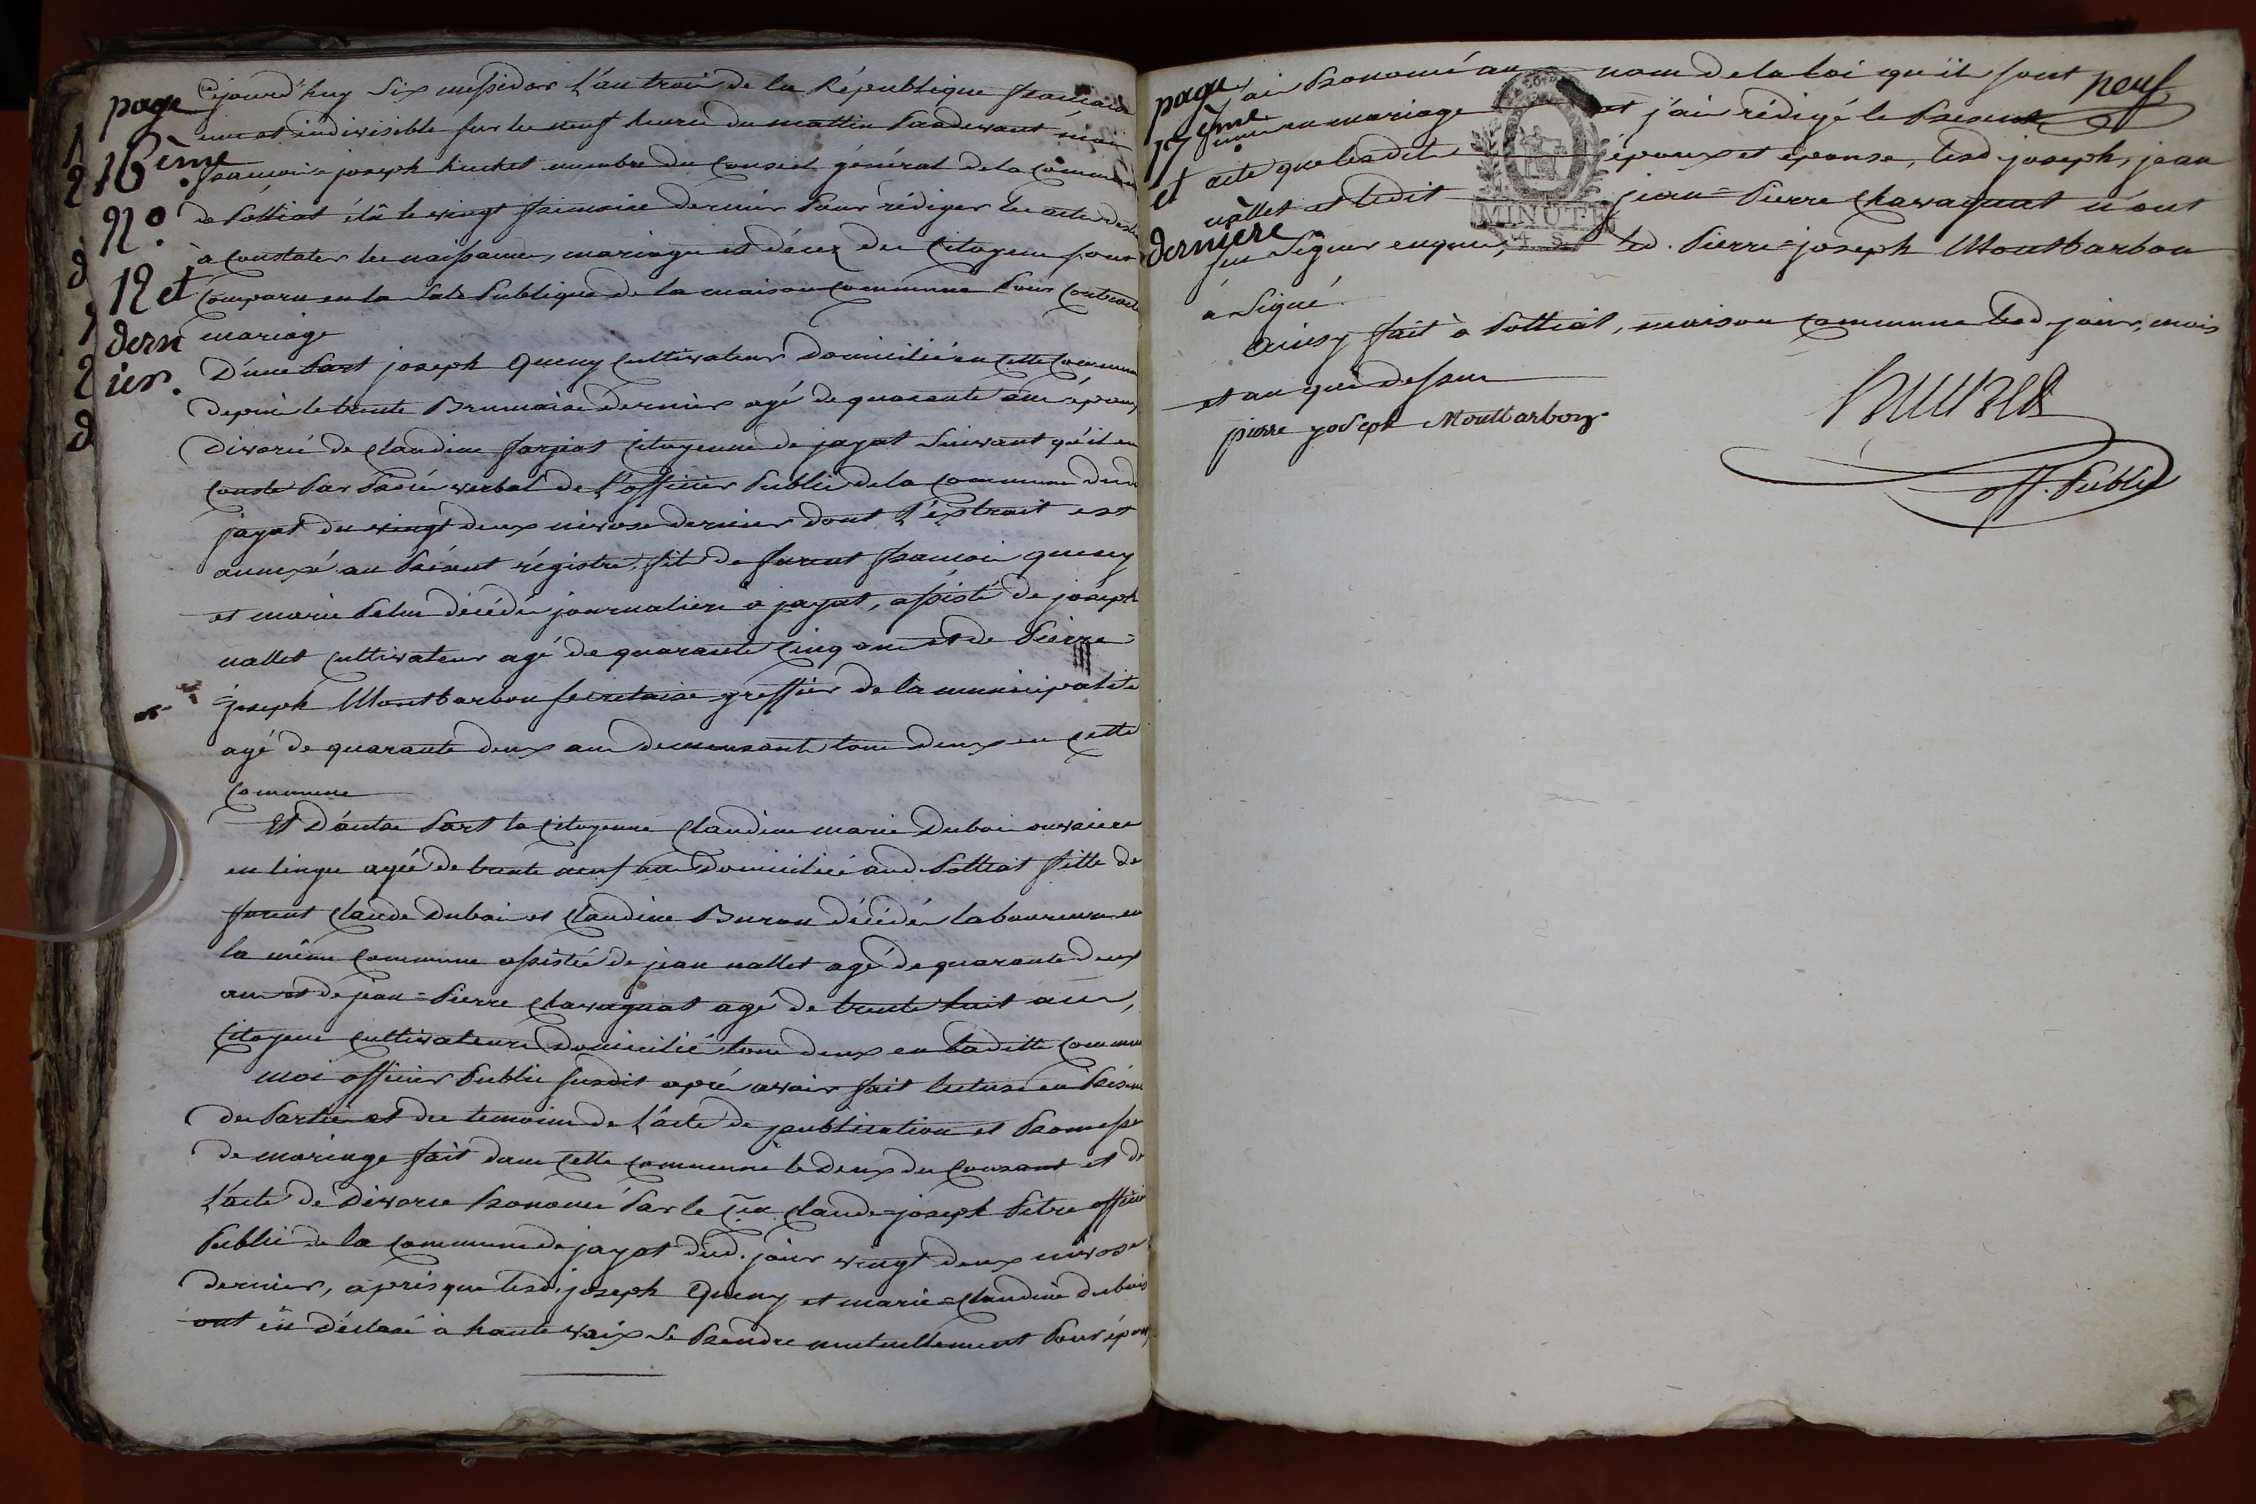 page
16ème
N°
12 et
dern
ier.
Cejourd'huy Six messidor l'an trois de la République francaise
une et indivisible sur les neuf heures du mattin Pardevant moi
francois joseph huchet membre du Conseil général de la Commune
de Polliat élû le vingt frimaire dernier Pour rédiger les actes destinés
à Constater les naissances, mariages et décez des Citoyens sont
Comparu en la Sale Publique de la maison Commune Pour Contracter
mariage
D'une Part joseph Queny Cultivateur Domicilié en Cette Commune
depuis le trente Brumaire dernier agé de quarante ans époux
Divorcé de Claudine forjiat Citoyenne de jayat Suivant qu'il en
Conste Par Procès verbal de l'officier Public de la Commune dud.
jayat du vingt deux nivose dernier dont l'extrait est
annexé au Présent régistre, fils de furent francois queny
et marie Pelus décédés journaliers à jayat, assisté de joseph
nallet Cultivateur agé de quarante Cinq ans et de Pierre=
joseph Montbarbon secretaire greffier de la municipalité
agé de quarante deux ans demeurants tous deux en Cette
Commune
Et D'autre Part la Citoyenne Claudine marie Dubois ouvriere
en linge agée de trente neuf ans Domiciliée aud. Polliat fille de
furent Claude Dubois et Claudine Buron décédés laboureurs en
la même Commune assistée de jean nallet agé de quarante deux
ans et de jean=Pierre Chavagnat agé de trente huit ans,
Citoyens Cultivateurs Domiciliés tous deux en laditte Commune
moi officier Public susdit après avoir fait lecture en Présence
des Parties et des temoins de l'acte de publication et Promesse
de mariage fait dans Cette Commune le deux du Courant et de
l'acte de Divorce Prononcé Par le Cen. Claude=joseph Pitre officier
Public de la Commune de jayat dud. jour vingt deux nivose
dernier, après que lesd. joseph Queny et marie=Claudine dubois
ont eû déclaré à haute voix Se Prendre mutuellement Pour époux,
page
17ème
et
dernière
neuf
j'ai Prononcé au nom de la Loi qu'ils sont
unis en mariage et j'ai rédigé le Présent
acte que lesdits époux et épouse, lesd. joseph, jean
nallet et ledit jean=Pierre Chavagnat n'ont
sus Signer enquis, led. Pierre=joseph Montbarbon
a Signé.
MINUTE
4 S.
Ainsy fait à Polliat, maison Commune lesd. jour, mois
et an que dessus
pierre joseph Montbarbon
huchet
off. Public